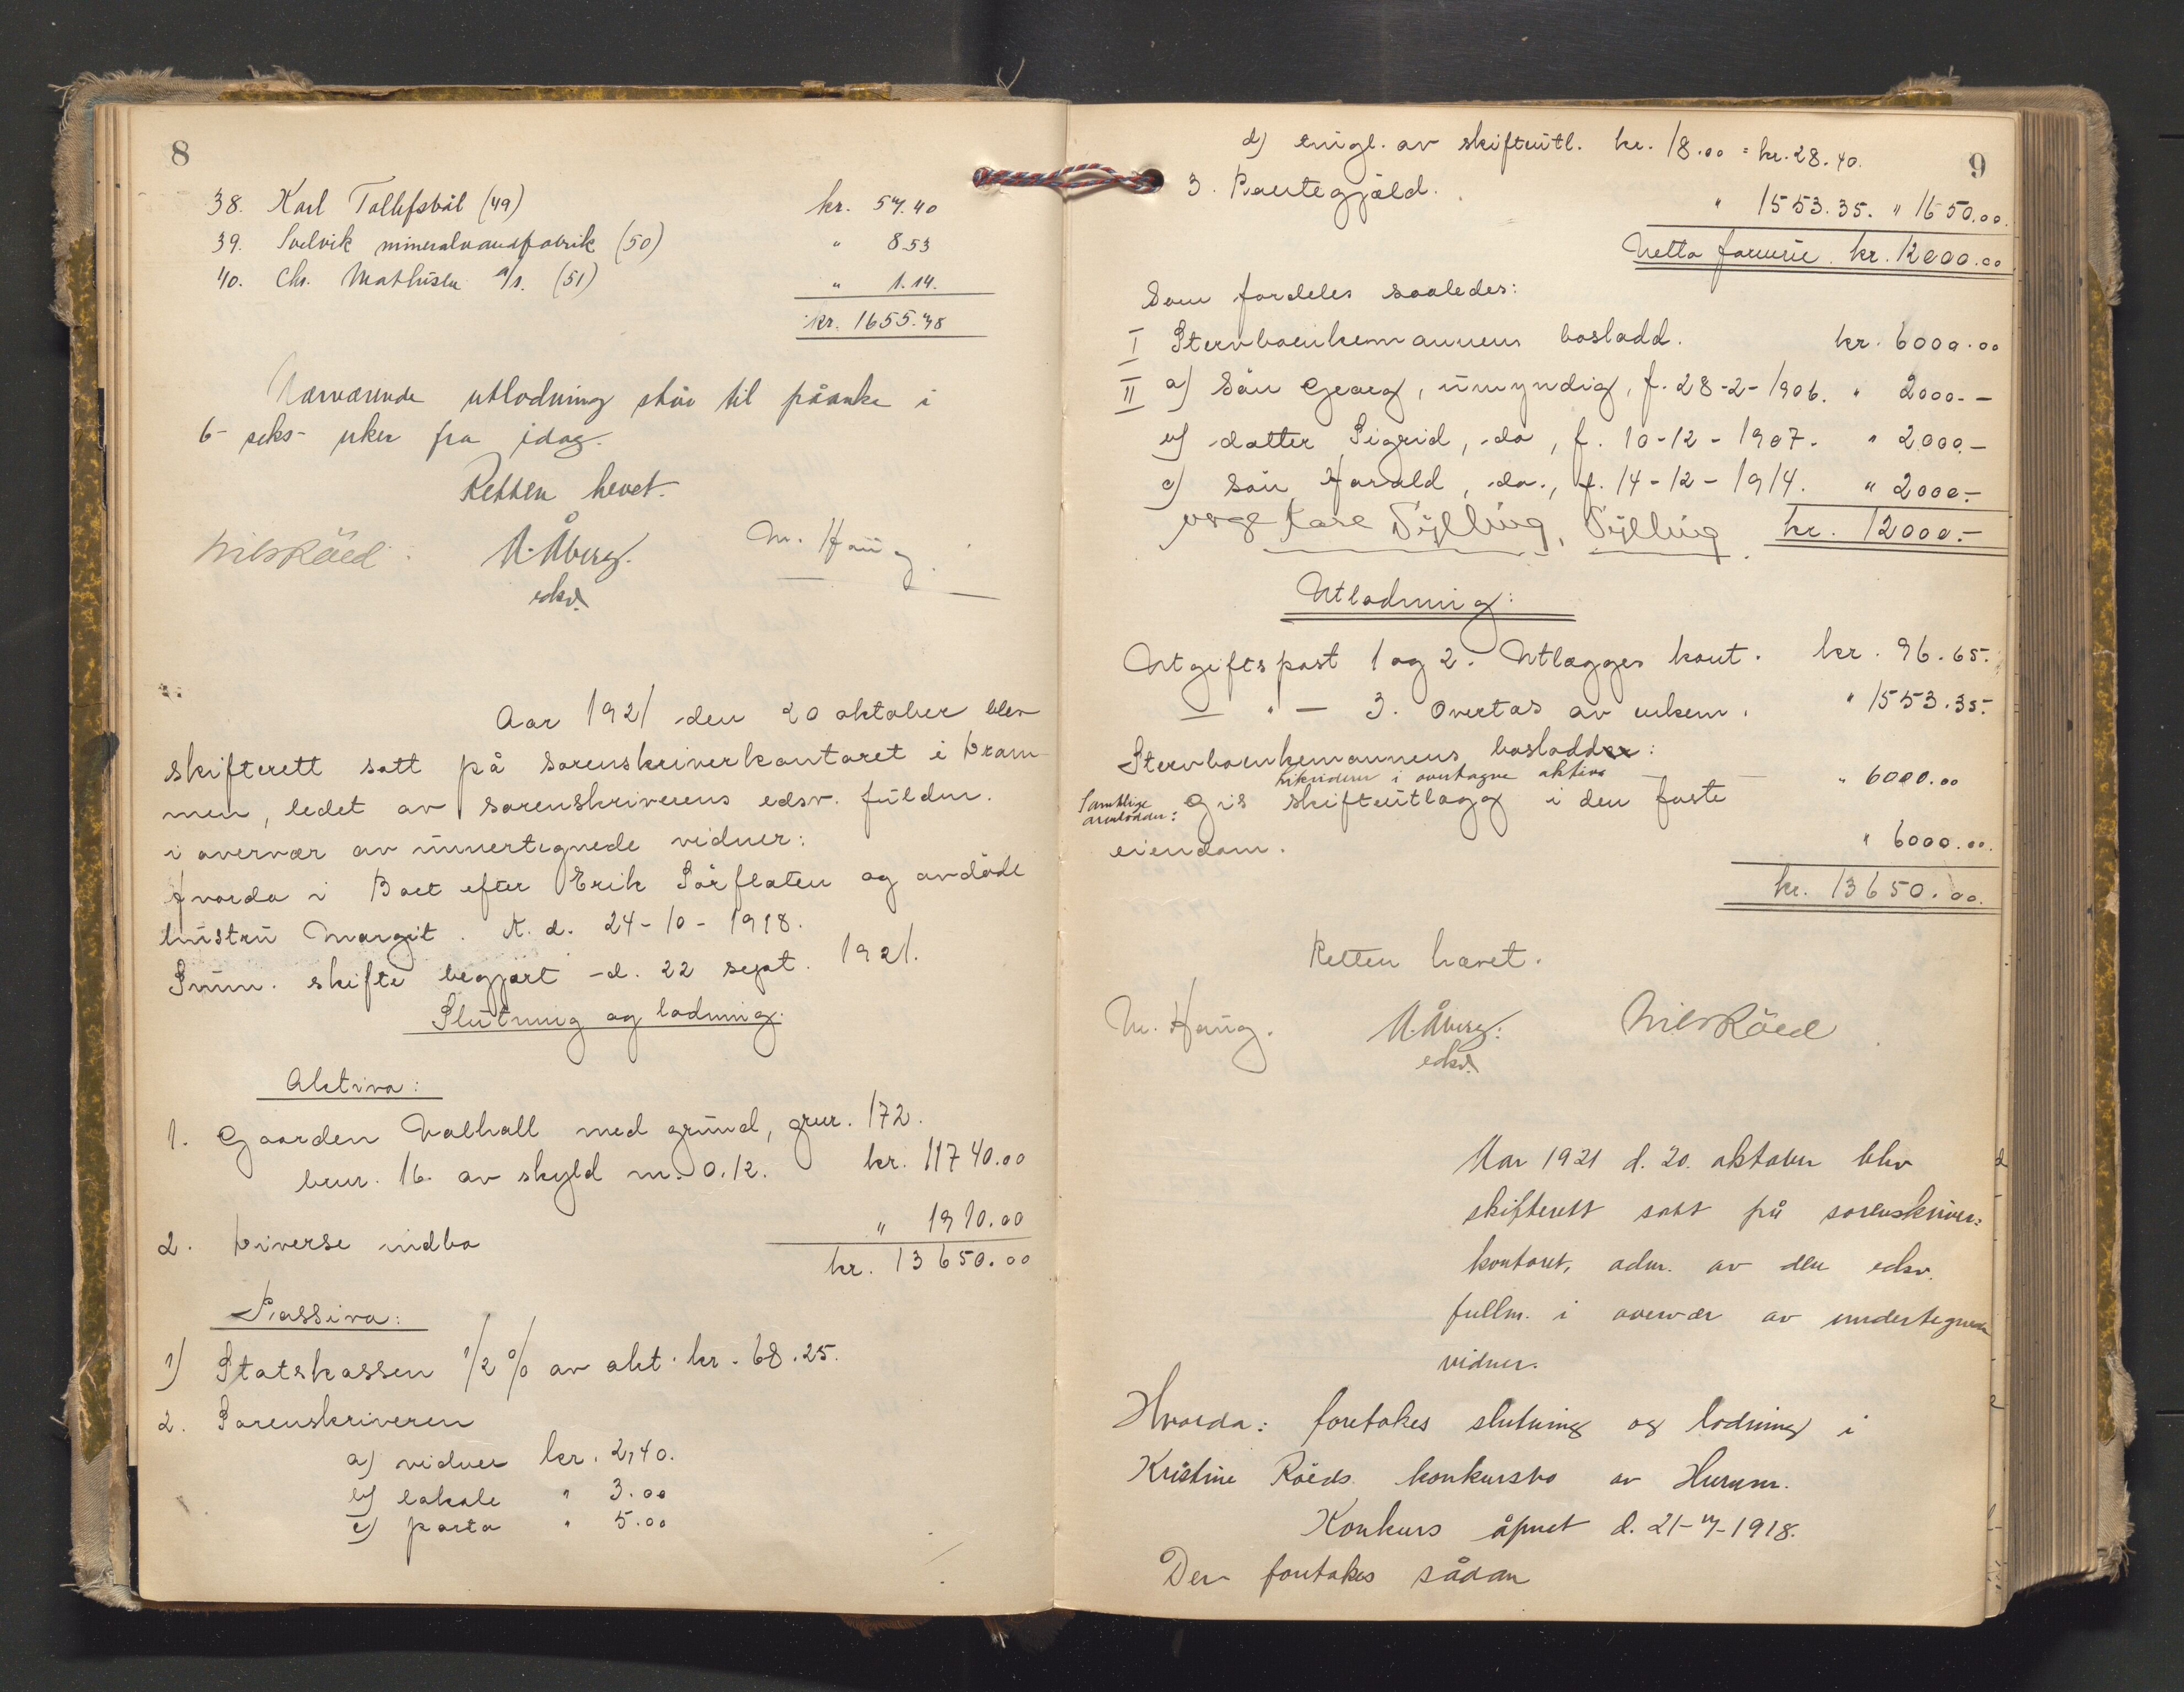 8
38. Karl Tollefsbøl (49) kr. 57.40
39. Svelvik mineralvandfabrik (50) " 8.53
40. Chr. Mathisen A/s. (51) " 1.14.
kr. 1655.78
Nærværende utlodning står til påanke i
6- seks- uker fra idag.
Retten hevet.
Nils Röed. A. Åberg. M. Haug.
edsv.
Aar 1921 den 20 oktober blev
skifterett satt på sorenskriverkontoret i Dram-
men, ledet av sorenskriverens edsv. fuldm.
i overvær av unnertegnede vidner:
Hvorda i Boet efter Erik Sörflaten og avdöde
hustru Margit. A. d. 24-10-1918.
Summ. skifte begjært d. 22 sept. 1921.
Slutning og lodning.
Aktiva:
1. Gaarden Valhall med grund, gnr. 172.
bnr. 16. av skyld m. 0.12. kr. 11740.00
2. Diverse indbo " 1910.00
kr. 13650.00
Passiva:
1) Statskassen 1/2 % av akt. kr. 68.25.
2. Sorenskriveren
a) vidner kr. 2,40.
b) lokale " 3.00
c) porto " 5.00
9
d) engl. av skifteutl. kr. 18.00 = kr. 28.40.
3. Pantegjæld. " 1553.35. " 1650.00.
Netto formue. kr. 12000.00
Som fordeles saaledes:
I Stervboenkemannens boslodd. kr. 6000.00
II a) Sön Georg, umyndig, f. 28-2-1906. " 2000.-
b) datter Sigrid, do, f. 10-12-1907. " 2000.-
c) Sön Harald, do., f. 14-12-1914. " 2000.-
verge Kare Tylling, Tylling. kr. 12000.-
Utlodning:
Utgiftspost 1 og 2. Utlægges kont. kr. 96.65.
— " — 3. Overtas av enkem. " 1553.35.
Stervboenkemannens boslodd:
likviderer i overtagne aktiva — " 6000.00
Samtlige arvelodder: Gis skifteutlagg i den faste
eiendom. " 6000.00.
kr. 13650.00.
Retten hævet.
M. Haug. A. Åberg. Nils Röed
edsv.
Aar 1921 d. 20. oktober blev
skifterett satt på sorenskriver=
kontoret, adm. av den edsv.
fullm. i overvær av undertegnede
vidner.
Hvorda: foretakes slutning og lodning i
Kristine Röeds konkursbo av Hurum.
Konkurs åpnet d. 21-7-1918.
Der foretakes sådan